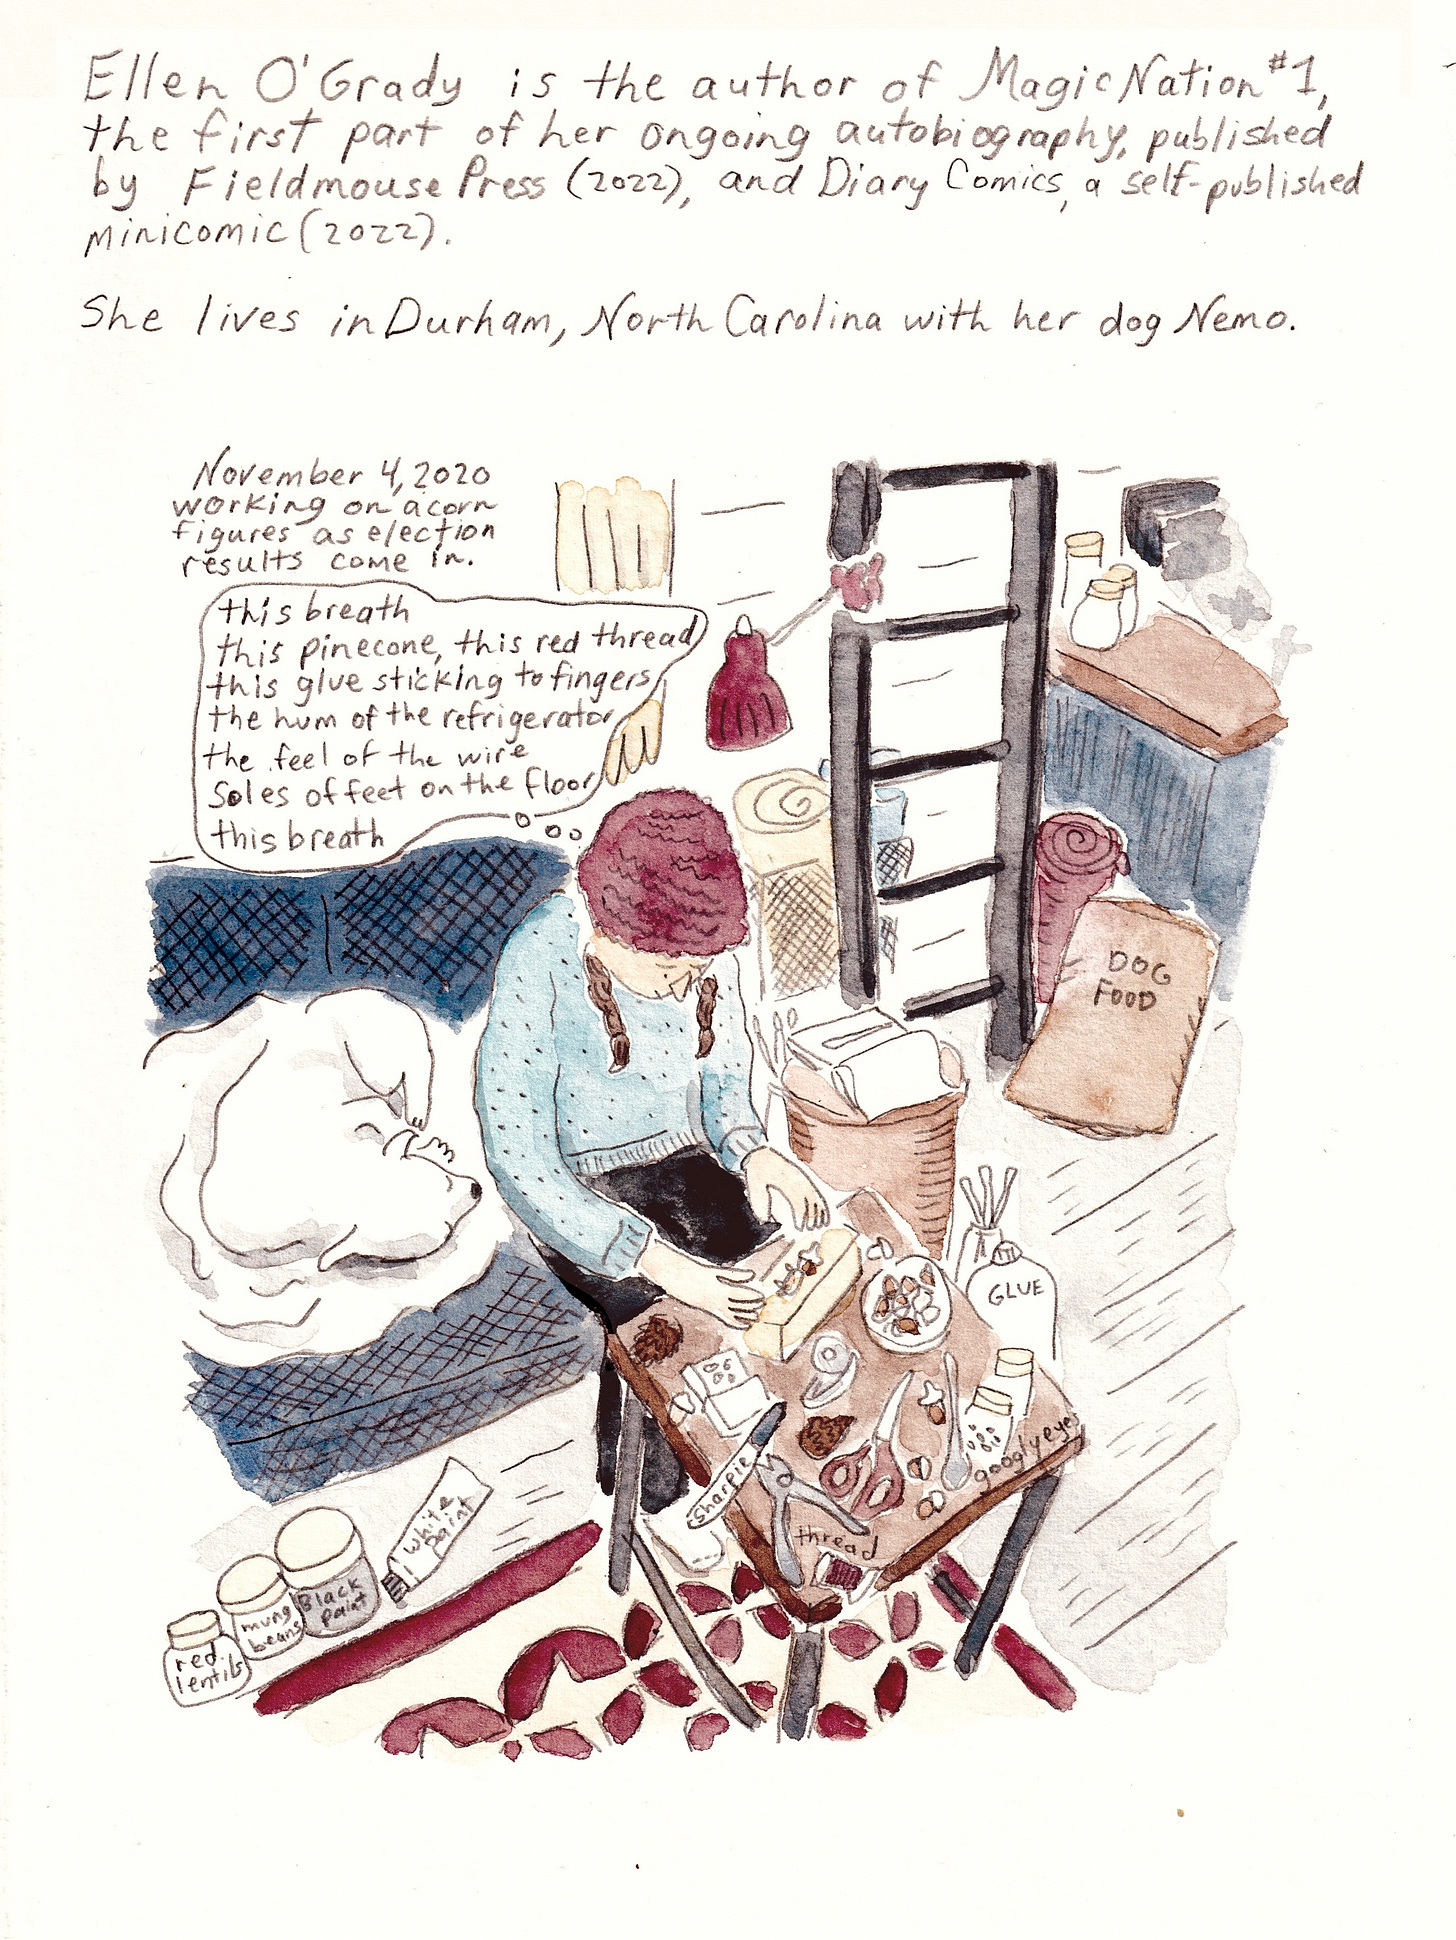 Ellen O'Grady is the author of Magic Nation #1,
the first part of her ongoing autobiography, published
by Fieldmouse Press (2022), and Diary Comics, a self-published
minicomic (2022).
She lives in Durham, North Carolina with her dog Nemo.
November 4, 2020
working on acorn
figures as election
results come in.
this breath
this pinecone, this red thread
this glue sticking to fingers
the hum of the refrigerator
the feel of the wire
Soles of feet on the floor
this breath
DOG
FOOD
GLUE
googly eyes
sharpie
thread
white
paint
Black
paint
mung
beans
red
lentils